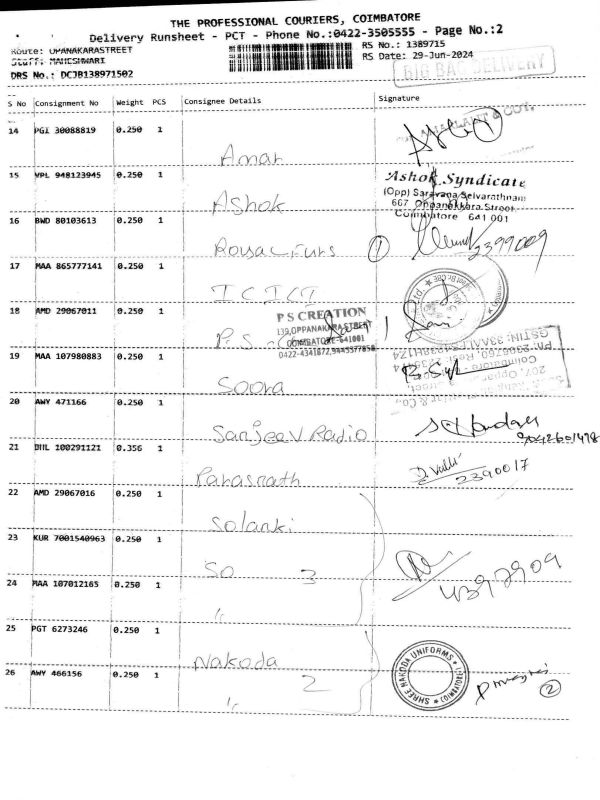 THE PROFESSIONAL COURIERS, COIMBATORE
Delivery Runsheet - PCT - Phone No.:0422-3505555 - Page No.:2
Route: OPANAKARASTREET
RS No.: 1389715
Staff: MAHESHWARI
RS Date: 29-Jun-2024
DRS No.: DCJB138971502
BIG BAG DELIVERY
S No Consignment No Weight PCS Consignee Details Signature
14 PGI 30088819 0.250 1 Amar
15 VPL 948123945 0.250 1 Ashok
Ashok Syndicate
(Opp) Saravana Selvarathnam
667 Oppanakkara Street
Coimbatore 641 001
16 BWD 80103613 0.250 1 1 2399009
17 MAA 865777141 0.250 1 ICICI
18 AMD 29067011 0.250 1 P.S.
P S CREATION
139,OPPANAKARA STREET
COIMBATORE-641001
0422-4341877,
19 MAA 107980883 0.250 1 Soora
20 AWY 471166 0.250 1 Sanjeev Radio
9042601478
21 DIL 100291121 0.356 1 Parasnath
2390017
22 AMD 29067016 0.250 1 Solanki
23 KUR 7001540963 0.250 1 So 3
4397909
24 MAA 107012165 0.250 1 "
25 PGT 6273246 0.250 1 Nakoda
26 AWY 466156 0.250 1 " 2
SHREE NAKODA UNIFORMS
2